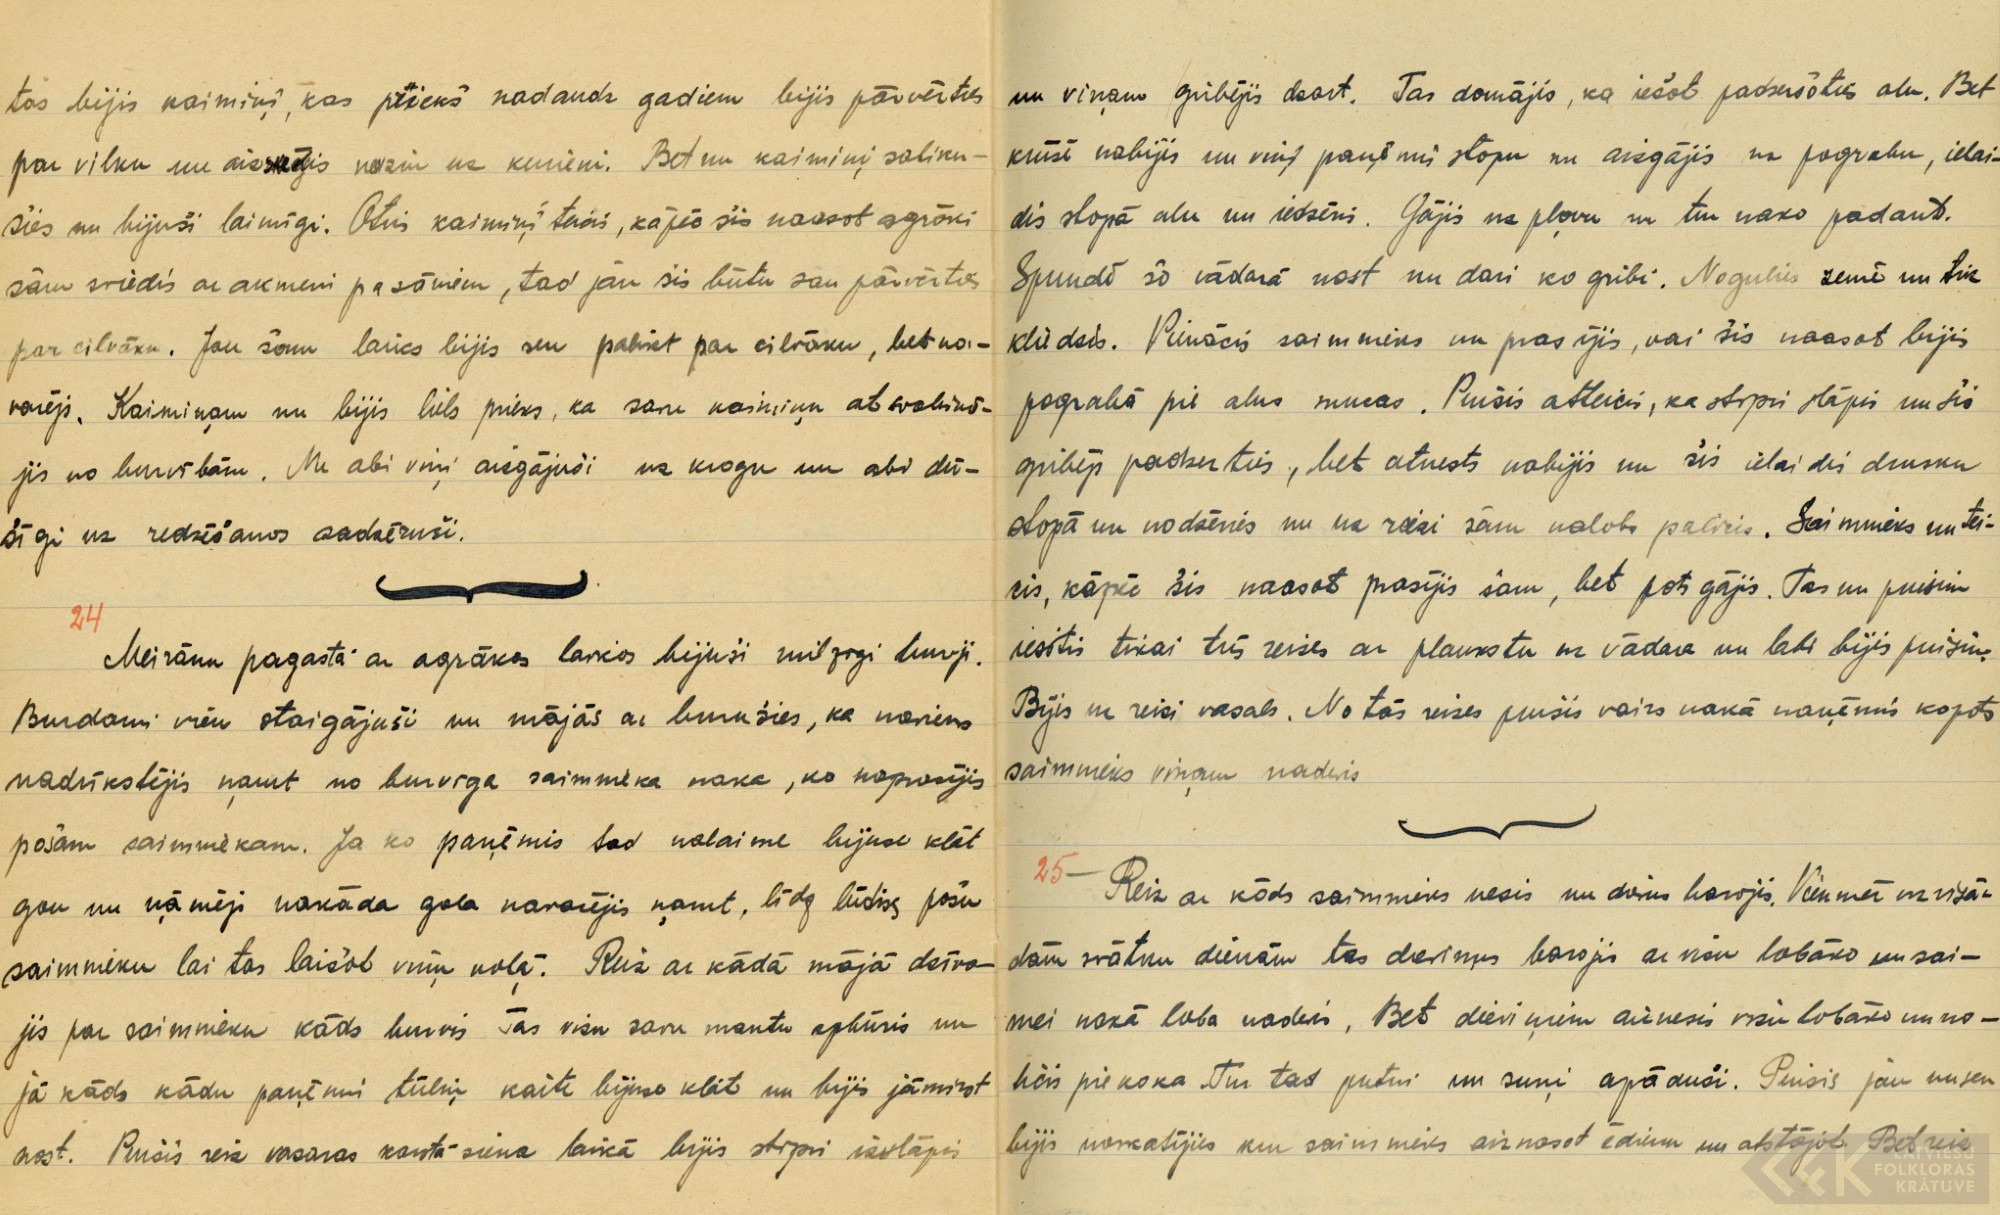 tas bijis kaimiņš, kas pirms nadaudz gadiem bijis pārvērties
par vilku un aizgājis nazin uz kurieni. Bet nu kaimiņi satiku-
šies nu bijuši laimīgi. Otris kaimiņš teicis, kāpēc šis naasot agrāki
šam sviedis ar akmeni pa sāniem, tad jau šis būtu san pārvērties
par cilvāku. Jau šam laiks bijis sen palikt par cilvāku, bet na-
varējs. Kaimiņam nu bijis liels prieks, ka savu kaimiņu atsvabinā-
jis no burvībām. Nu abi viņi aizgājuši uz krogu un abi dū-
šīgi uz redzēšanos sadzēruši.
24
Meirānu pagastā ar agrākos laikos bijuši milzīgi burvji.
Burdami viņi staigājuši un mājās ar burušies, ka naviens
nadrīkstējis ņamt no burvīga saimnieka naka, ko naprasījis
pošam saimniekam. Ja ko paņēmis tad nalaime bijuse klāt
gan un ņāmējs nakāda gala navarējis ņamt, līdz lūdzis pošu
saimnieku lai tas laižot viņu vaļā. Reiz ar kādā mājā dzīva-
jis par saimnieku kāds burvis Tas visu savu mantu apbūris un
jā kāds kādu paņēmis tūliņ kaite bijuse klāt un bijis jāmirst
nost. Puisis reiz vasaras karstā siena laikā bijis stipri izslāpis
un viņam gribējis dzart. Tas domājis, ka iešot padzersāties alu. Bet
krūzē nabijis un viņš paņēmis stopu un aizgājis uz pagrabu, ielai-
dis stopā alu un iedzēris. Gājis uz pļavu un tur nako padarīt.
Spundē šo vādarā nost un dari ko gribi. Nogulies zemē un tik
kliedzis. Pienācis saimnieks un prasījis, vai šis naasot bijis
pagrabā pie alus mucas. Puisis atteicis, ka stipri slāpis un šis
gribējs padzerties, bet atnests nabijis un šis ielaidis drusku
stopā un nodzēries un uz reizi šam nalobs palicis. Saimnieks nu tei-
cis, kāpēc šis naasot prasījis šam, bet pats gājis. Tas nu puisim
iesitis tikai trīs reizes ar plaukstu uz vādara un labi bijis puisim.
Bijis uz reizi vasals. No tās reizes puisis vairs nakā naņēmis kopots
saimnieks viņam nadevis
25
Reiz ar kāds saimnieks nesis un dievus barojis. Vienmēr uz visā-
dām svātku dienām tas dieviņus barojis ar visu lobāko un sai-
mei nakā loba nadevis, Bet dieviņiem aiznesis visu lobāko un no-
licis pie koka. Tur tad putni un suņi apāduši. Puisis jau nu sen
bijis noskatījies kur saimnieks aiznasot ēdienu un atstājot. Bet reiz
LATVIEŠU
FOLKLORAS
KRĀTUVE